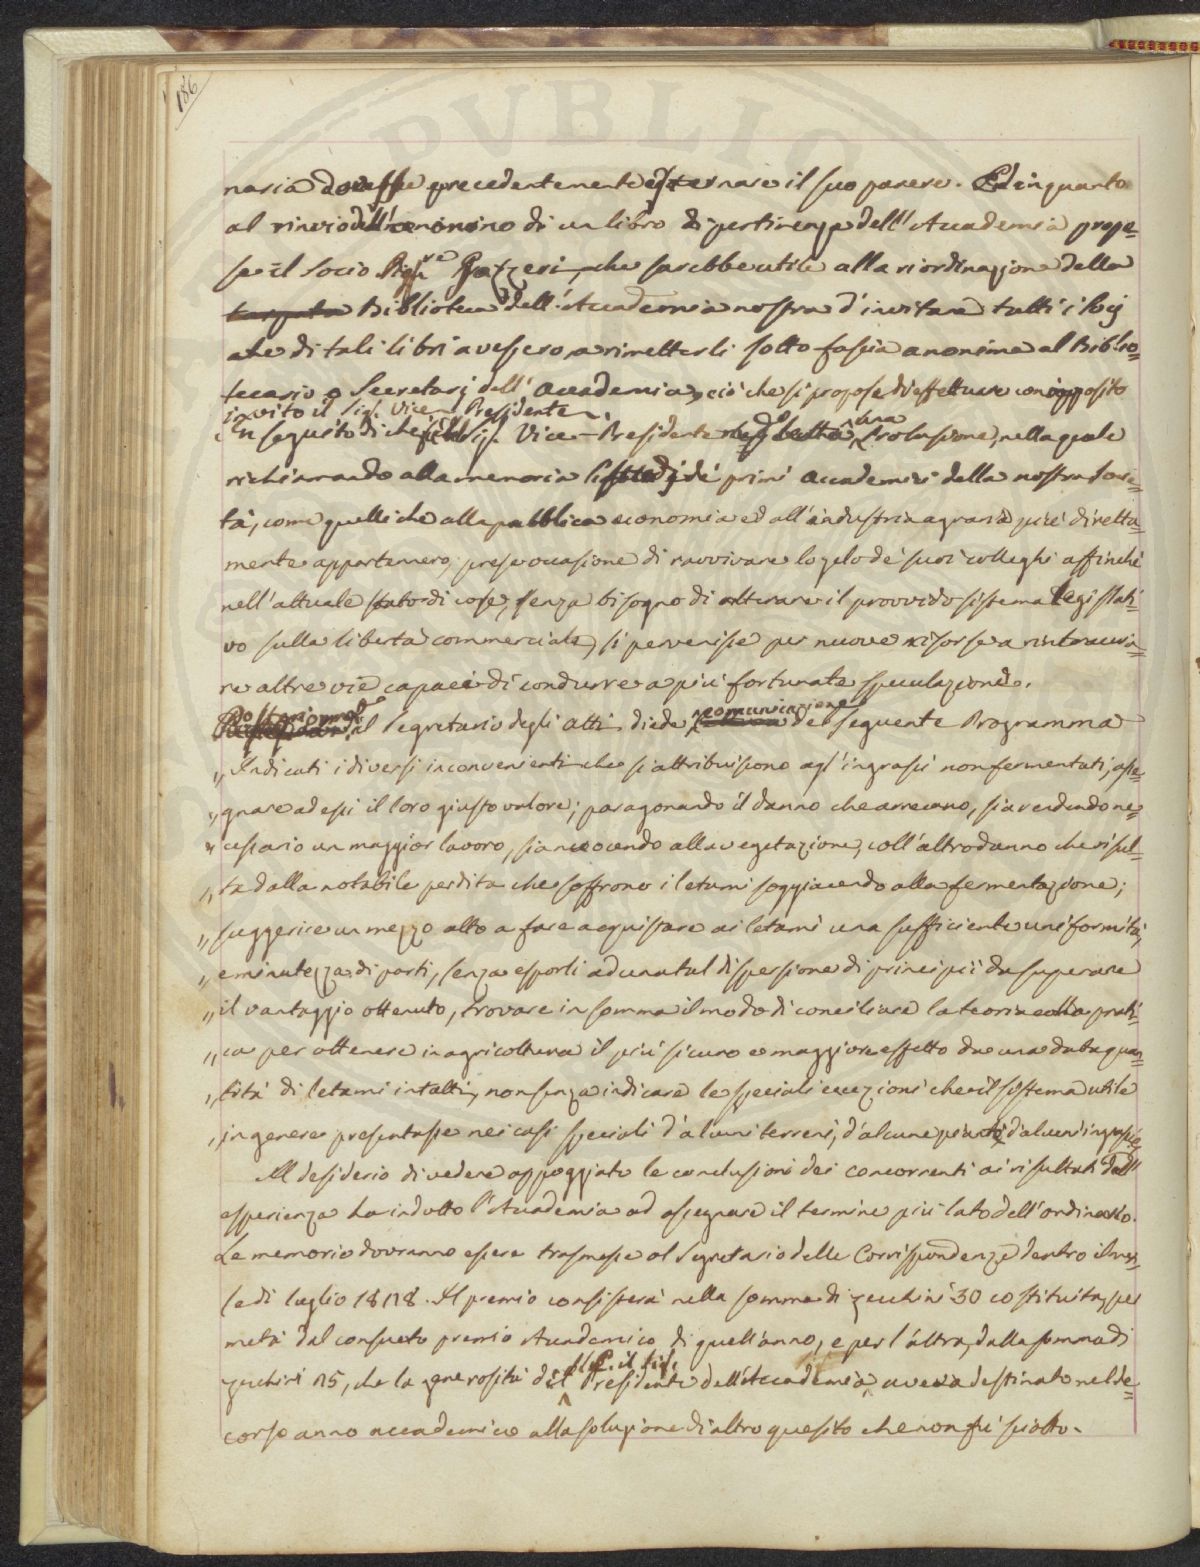 186
naria dovesse precedentemente esternare il suo parere. Ed in quanto
al rinvio dell'anonimo di un libro di pertinenza dell'Accademia propo=
se il Socio Sig.re Gazzeri, che sarebbe utile alla riordinazione della
Biblioteca dell'Accademia nostra d'invitare tutti i Socj
che di tali libri avessero, a rimetterli sotto fascia anonima al Biblio=
tecario o Secretarj dell'Accademia, ciò che si propose di effettuare con apposito
invito il Sig. Vice-Presidente.
In seguito di che il Sig. Vice-Presidente una Prolusione, nella quale
richiamando alla memoria de' primi Accademici della nostra Socie=
tà, come quelli che alla pubblica economia ed all'industria agraria più diretta=
mente appartennero, prese occasione di ravvivare lo zelo de' suoi colleghi affinchè
nell'attuale stato di cose, senza bisogno di alterare il provvido sistema legislati=
vo sulla libertà commerciale, si pervenisse per nuove risorse a rintraccia=
re altre vie capaci di condurre a più fortunate speculazioni.
il Segretario degli Atti diede comunicazione del seguente Programma
„ Indicati i diversi inconvenienti che si attribuiscono agl'ingrassi non fermentati, asse=
„ gnare ad essi il loro giusto valore; paragonando il danno che arrecano, sia rendendo ne=
„ cessario un maggior lavoro, sia nuocendo alla vegetazione, coll'altro danno che risul=
„ ta dalla notabile perdita che soffrono i letami soggiacendo alla fermentazione;
„ suggerire un mezzo atto a fare acquistare ai letami una sufficiente uniformità,
„ e minutezza di parti, senza esporli ad una tal dispersione di principii da superare
„ il vantaggio ottenuto, trovare in somma il modo di conciliare la teoria colla prati=
„ ca per ottenere in agricoltura il più sicuro e maggiore effetto da una data quan=
„ tità di letami intatti, non senza indicare le speciali eccezioni che il sistema utile
„ in genere presentasse nei casi speciali d'alcuni terreni, d'alcune piante, d'alcuni ingrassi.
Il desiderio di vedere appoggiate le conclusioni dei concorrenti ai risultati dell'
esperienza ha indotto l'Accademia ad assegnare il termine più lato dell'ordinario.
Le memorie dovranno essere trasmesse al Segretario delle Corrispondenze dentro il me=
se di luglio 1828. Il premio consisterà nella somma di zecchini 30 costituita, per
metà dal consueto premio Accademico di quell'anno, e per l'altra, dalla somma di
zecchini 15, che la generosità del il Sig. Presidente dell'Accademia aveva destinato nel de=
corso anno accademico alla soluzione di altro quesito che non fu sciolto.